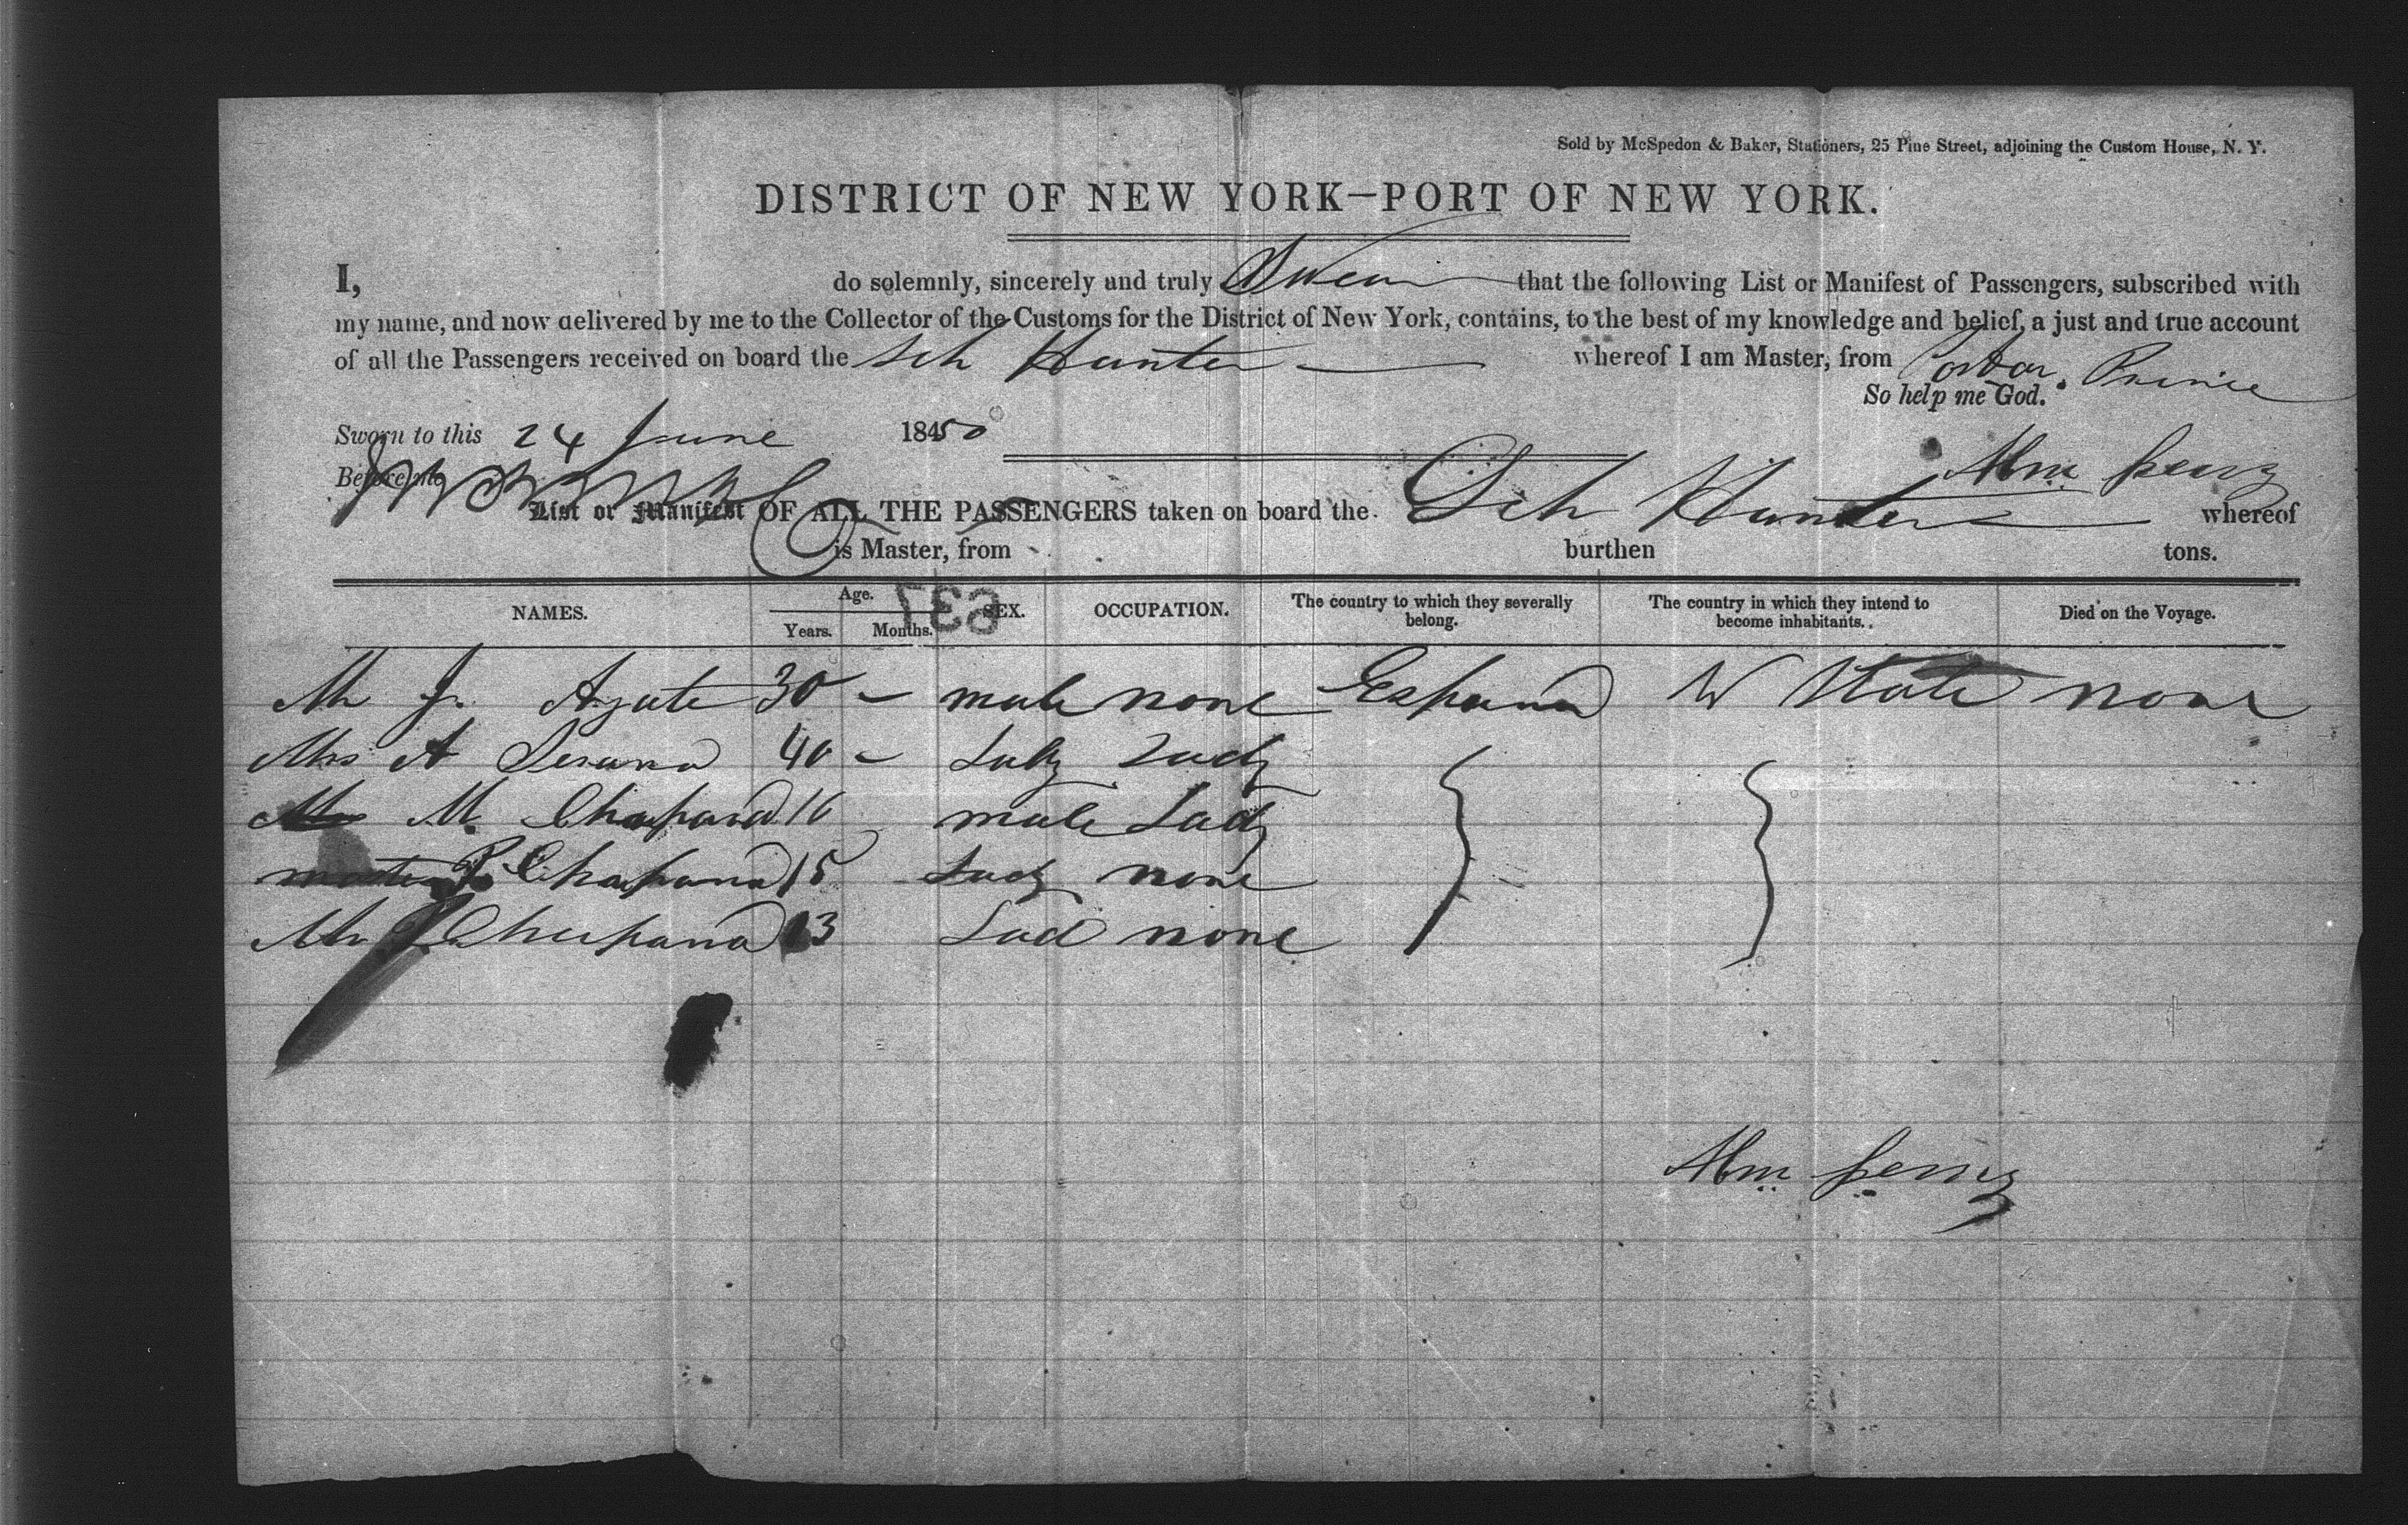 Sold by McSpedon & Baker, Stationers, 25 Pine Street, adjoining the Custom House, N. Y.
DISTRICT OF NEW YORK—PORT OF NEW YORK.
I, do solemnly, sincerely and truly Swear that the following List or Manifest of Passengers, subscribed with
my name, and now delivered by me to the Collector of the Customs for the District of New York, contains, to the best of my knowledge and belief, a just and true account
of all the Passengers received on board the Sch Hunter whereof I am Master, from Port au Prince
So help me God.
Sworn to this 24 June 1850
Before me Wm Perry
List or Manifest OF ALL THE PASSENGERS taken on board the Sch Hunter whereof
is Master, from burthen tons.
NAMES. Age. SEX. OCCUPATION. The country to which they severally belong. The country in which they intend to become inhabitants. Died on the Voyage.
Years. Months.
637
Mr J. Azute 30 – male none Espana U State none
Mrs A 40 – Lady Lady
M. Chapana 16 male Lady
Chapana 15 Lady none
Chapana 13 Lad none
Wm Perry